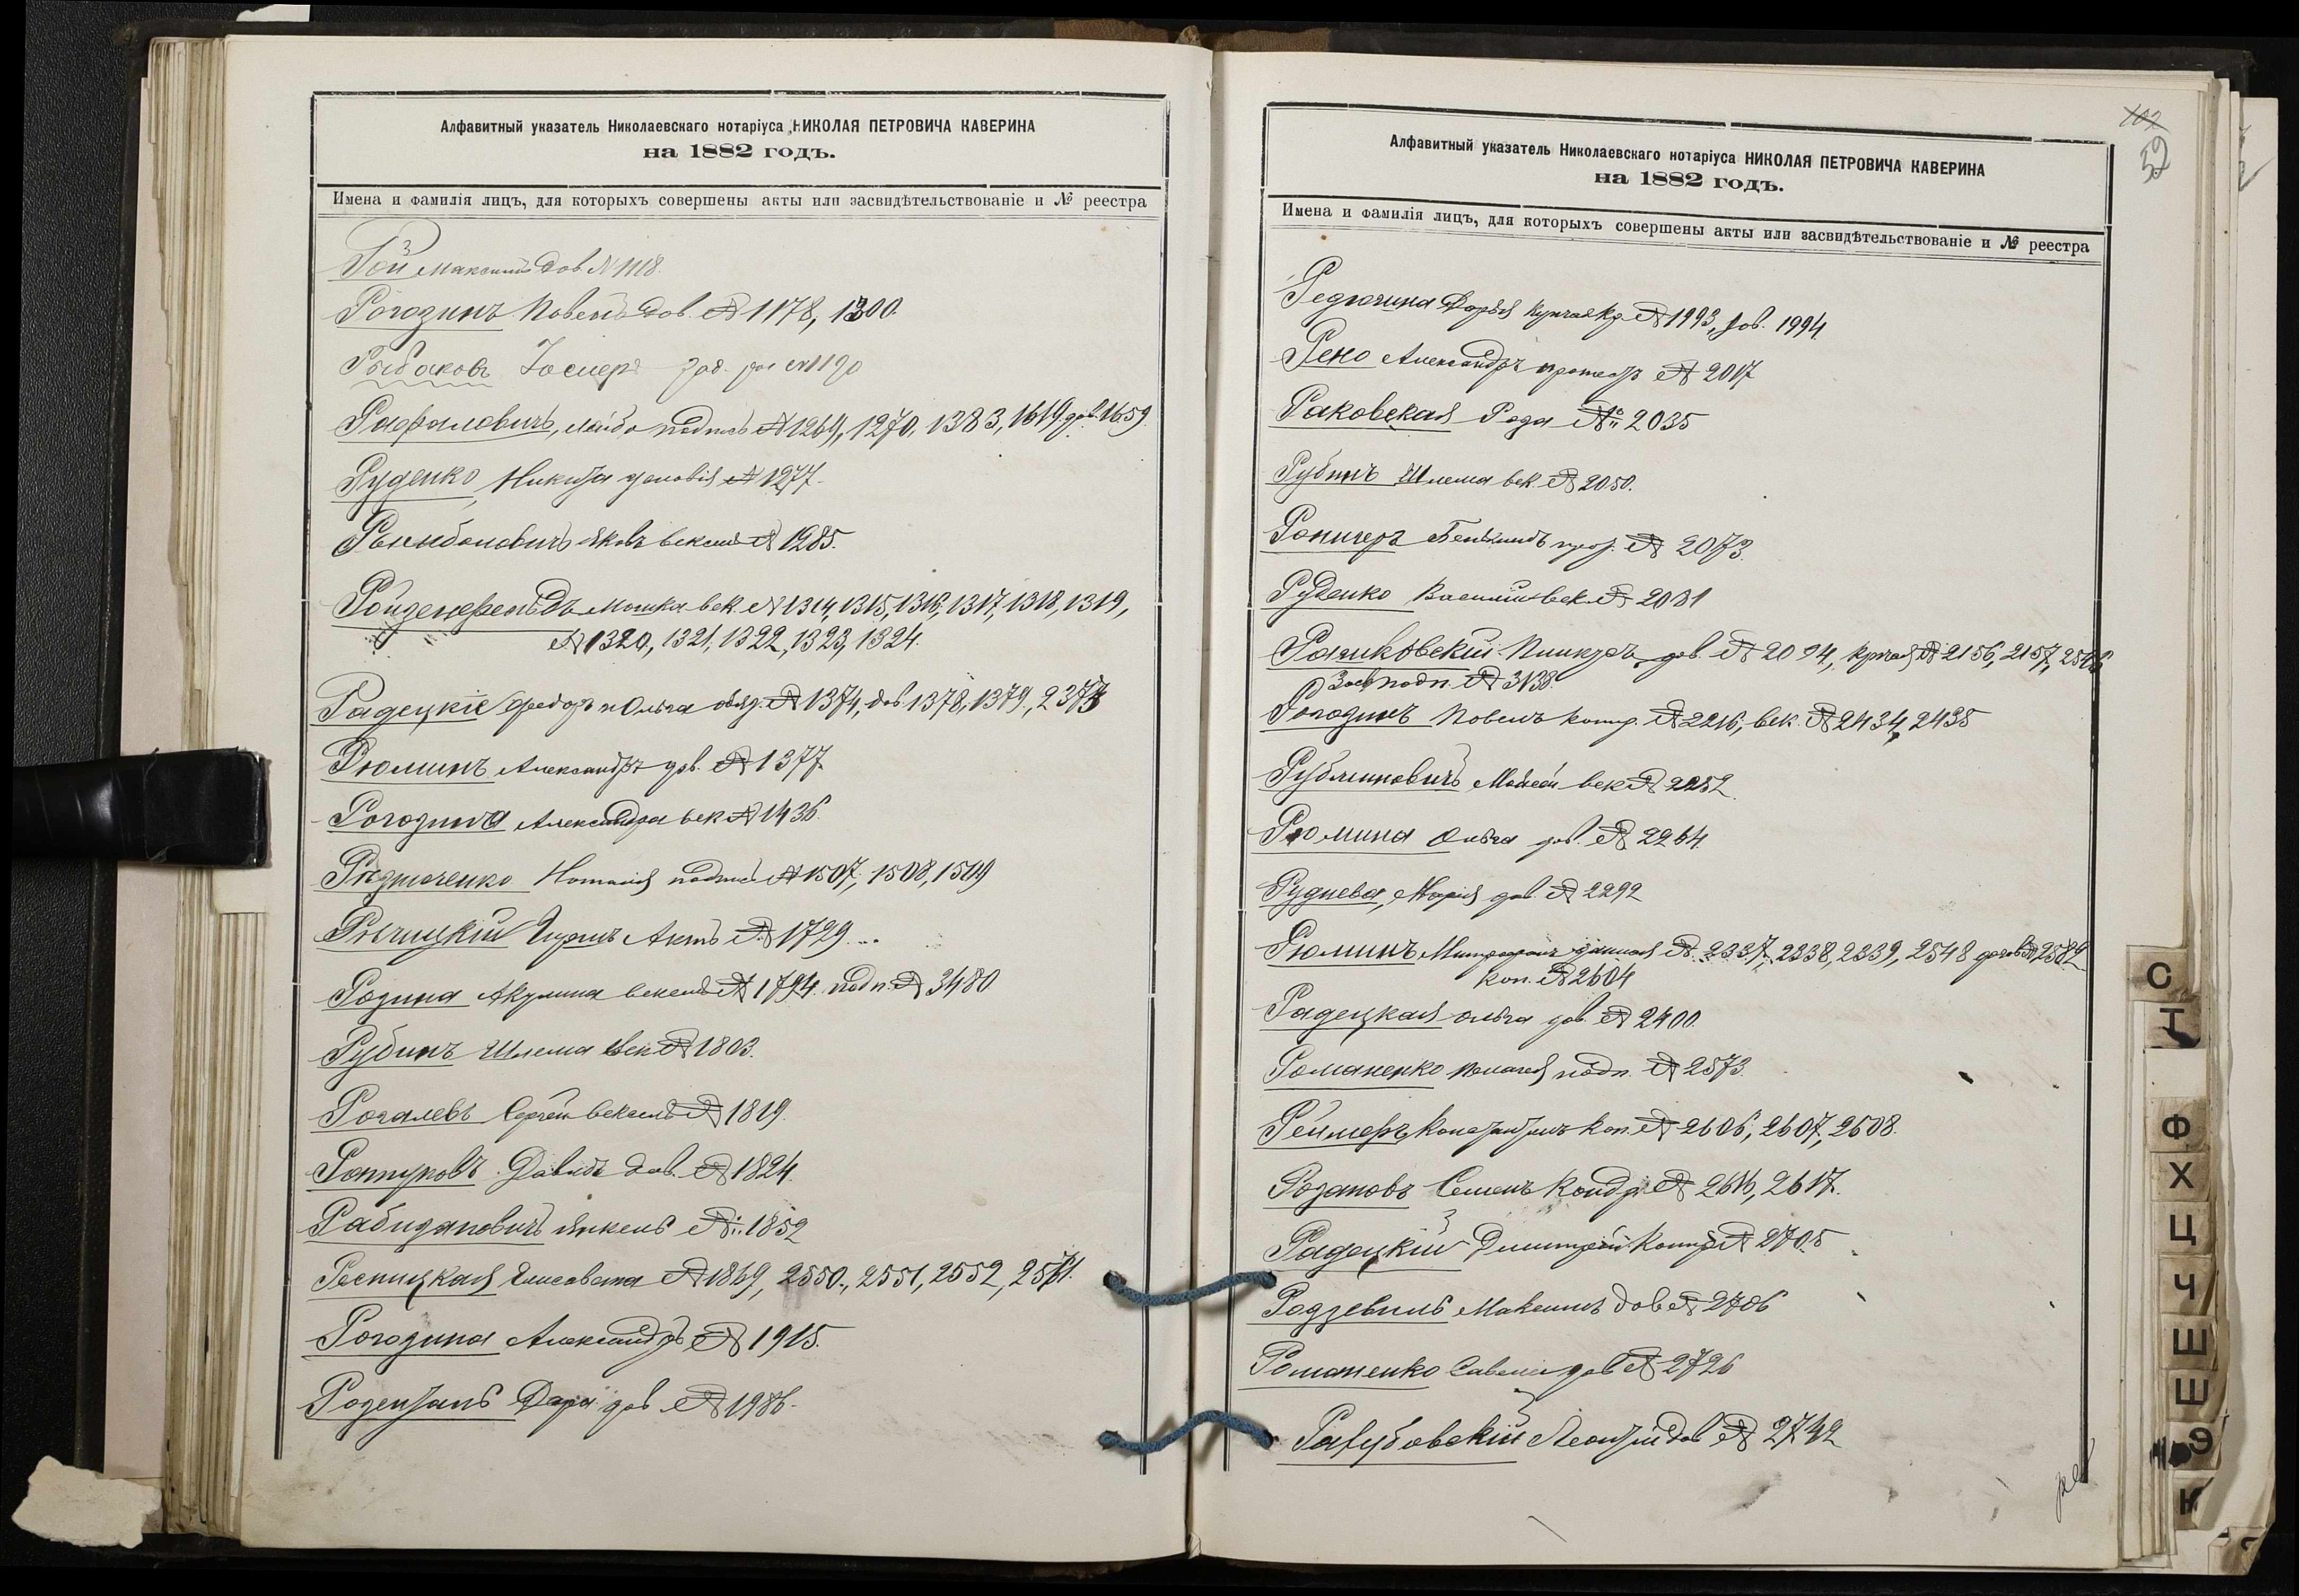 Алфавитный указатель Николаевскаго нотаріуса НИКОЛАЯ ПЕТРОВИЧА КАВЕРИНА
на 1882 годъ.
Имена и Фамилія лицъ, для которыхъ совершены акты или засвидѣтельствованіе и № реестра
Рой Максимъ дов № 1118.
Рогозинъ Павелъ дов. № 1178, 1300.
Рыбаковъ Іосифъ № 1190
Рафаловичъ, Лейба подпись № 1269, 1270, 1383, 1619 дов. 1659.
Руденко Никита условія № 1277.
Яковъ вексель № 1285.
Ройденфельдъ Мошка век. № 1314, 1315, 1316, 1317, 1318, 1319,
№ 1320, 1321, 1322, 1323, 1324.
Радецкіе Федоръ и Ольга обяз. № 1374, дов 1378, 1379,
Рюминъ Александръ дов. № 1377.
Рогозина Александра век № 1436.
Наталія подпись № 1507, 1508, 1509
Рѣчицкій Актъ № 1729...
Розина Акулина вексель № 1794. подп. № 3480
Рубинъ Шлема век № 1803.
Рогалевъ Сергѣй вексель № 1819.
Давидъ дов. № 1824.
Рабиновичъ Янкель № 1852
Ресницкая Елисавета № 1869, 2550, 2551, 2552,
Рогозина Александръ № 1915.
дов № 1986.
102
52
Алфавитный указатель Николаевскаго нотаріуса НИКОЛАЯ ПЕТРОВИЧА КАВЕРИНА
на 1882 годъ.
Имена и Фамилія лицъ, для которыхъ совершены акты или засвидѣтельствованіе и № реестра
Дарья купчая кр. № 1993, дов. 1994.
Рено Александръ протестъ № 2017
Раковская Роза № 2035
Рубинъ Шлема век. № 2050.
№ 2073.
Руденко Василій век № 2081
Рашковскій дов. № 2094, купчая № 2156, 2157,
Зас. подп. № 3138.
Рогозинъ Павелъ контр. № 2216, век. № 2434, 2435
Рублиновичъ Мойсей век № 2252.
Рюмина Ольга дов. № 2264.
Руднева, Марія дов. № 2292
Рюминъ Митрофанъ данная № 2337, 2338, 2339, 2548 договъ № 2589
коп. № 2604
Радецкая Ольга дов. № 2400.
Романенко подп. № 2573.
Реймеръ Константинъ коп. № 2606, 2607, 2608.
Розановъ Семенъ № 2616, 2617.
Радецкій Димитрій контр № 2705
Радзевилъ Максимъ дов № 2706
Романенко Савелій дов № 2726
Леонтій дов № 2742
С
Т
Ф
Х
Ц
Ч
Ш
Щ
Э